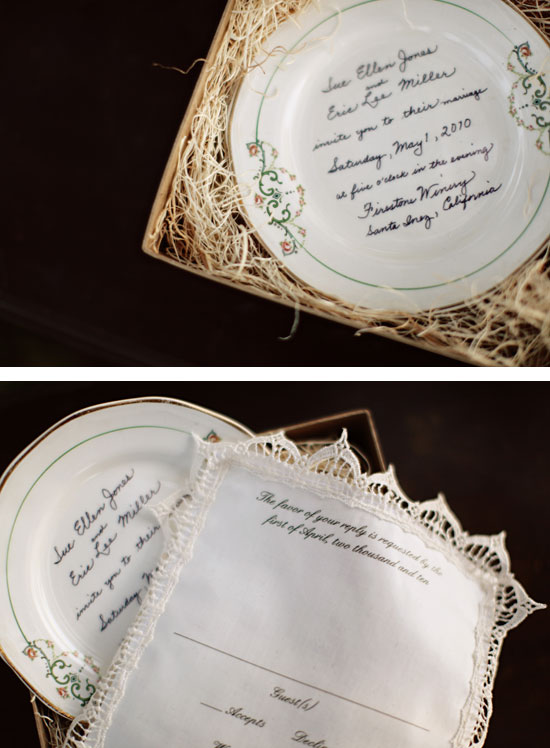 Sue Ellen Jones
and
Eric Lee Miller
invite you to their marriage
Saturday, May 1, 2010
at five o'clock in the evening
Firestone Winery
Santa Inez, California
Sue Ellen Jones
and
Eric Lee Miller
invite you to their
Saturday
The favor of your reply is requested by the
first of April, two thousand and ten
Guest(s)
Accepts Decline